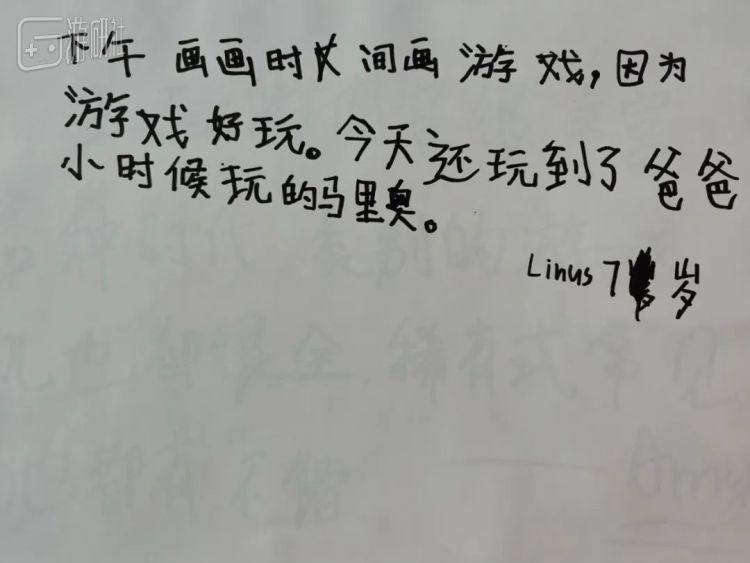 游研社
下午画画时间画游戏,因为
游戏好玩。今天还玩到了爸爸
小时候玩的马里奥。
Linus 7岁